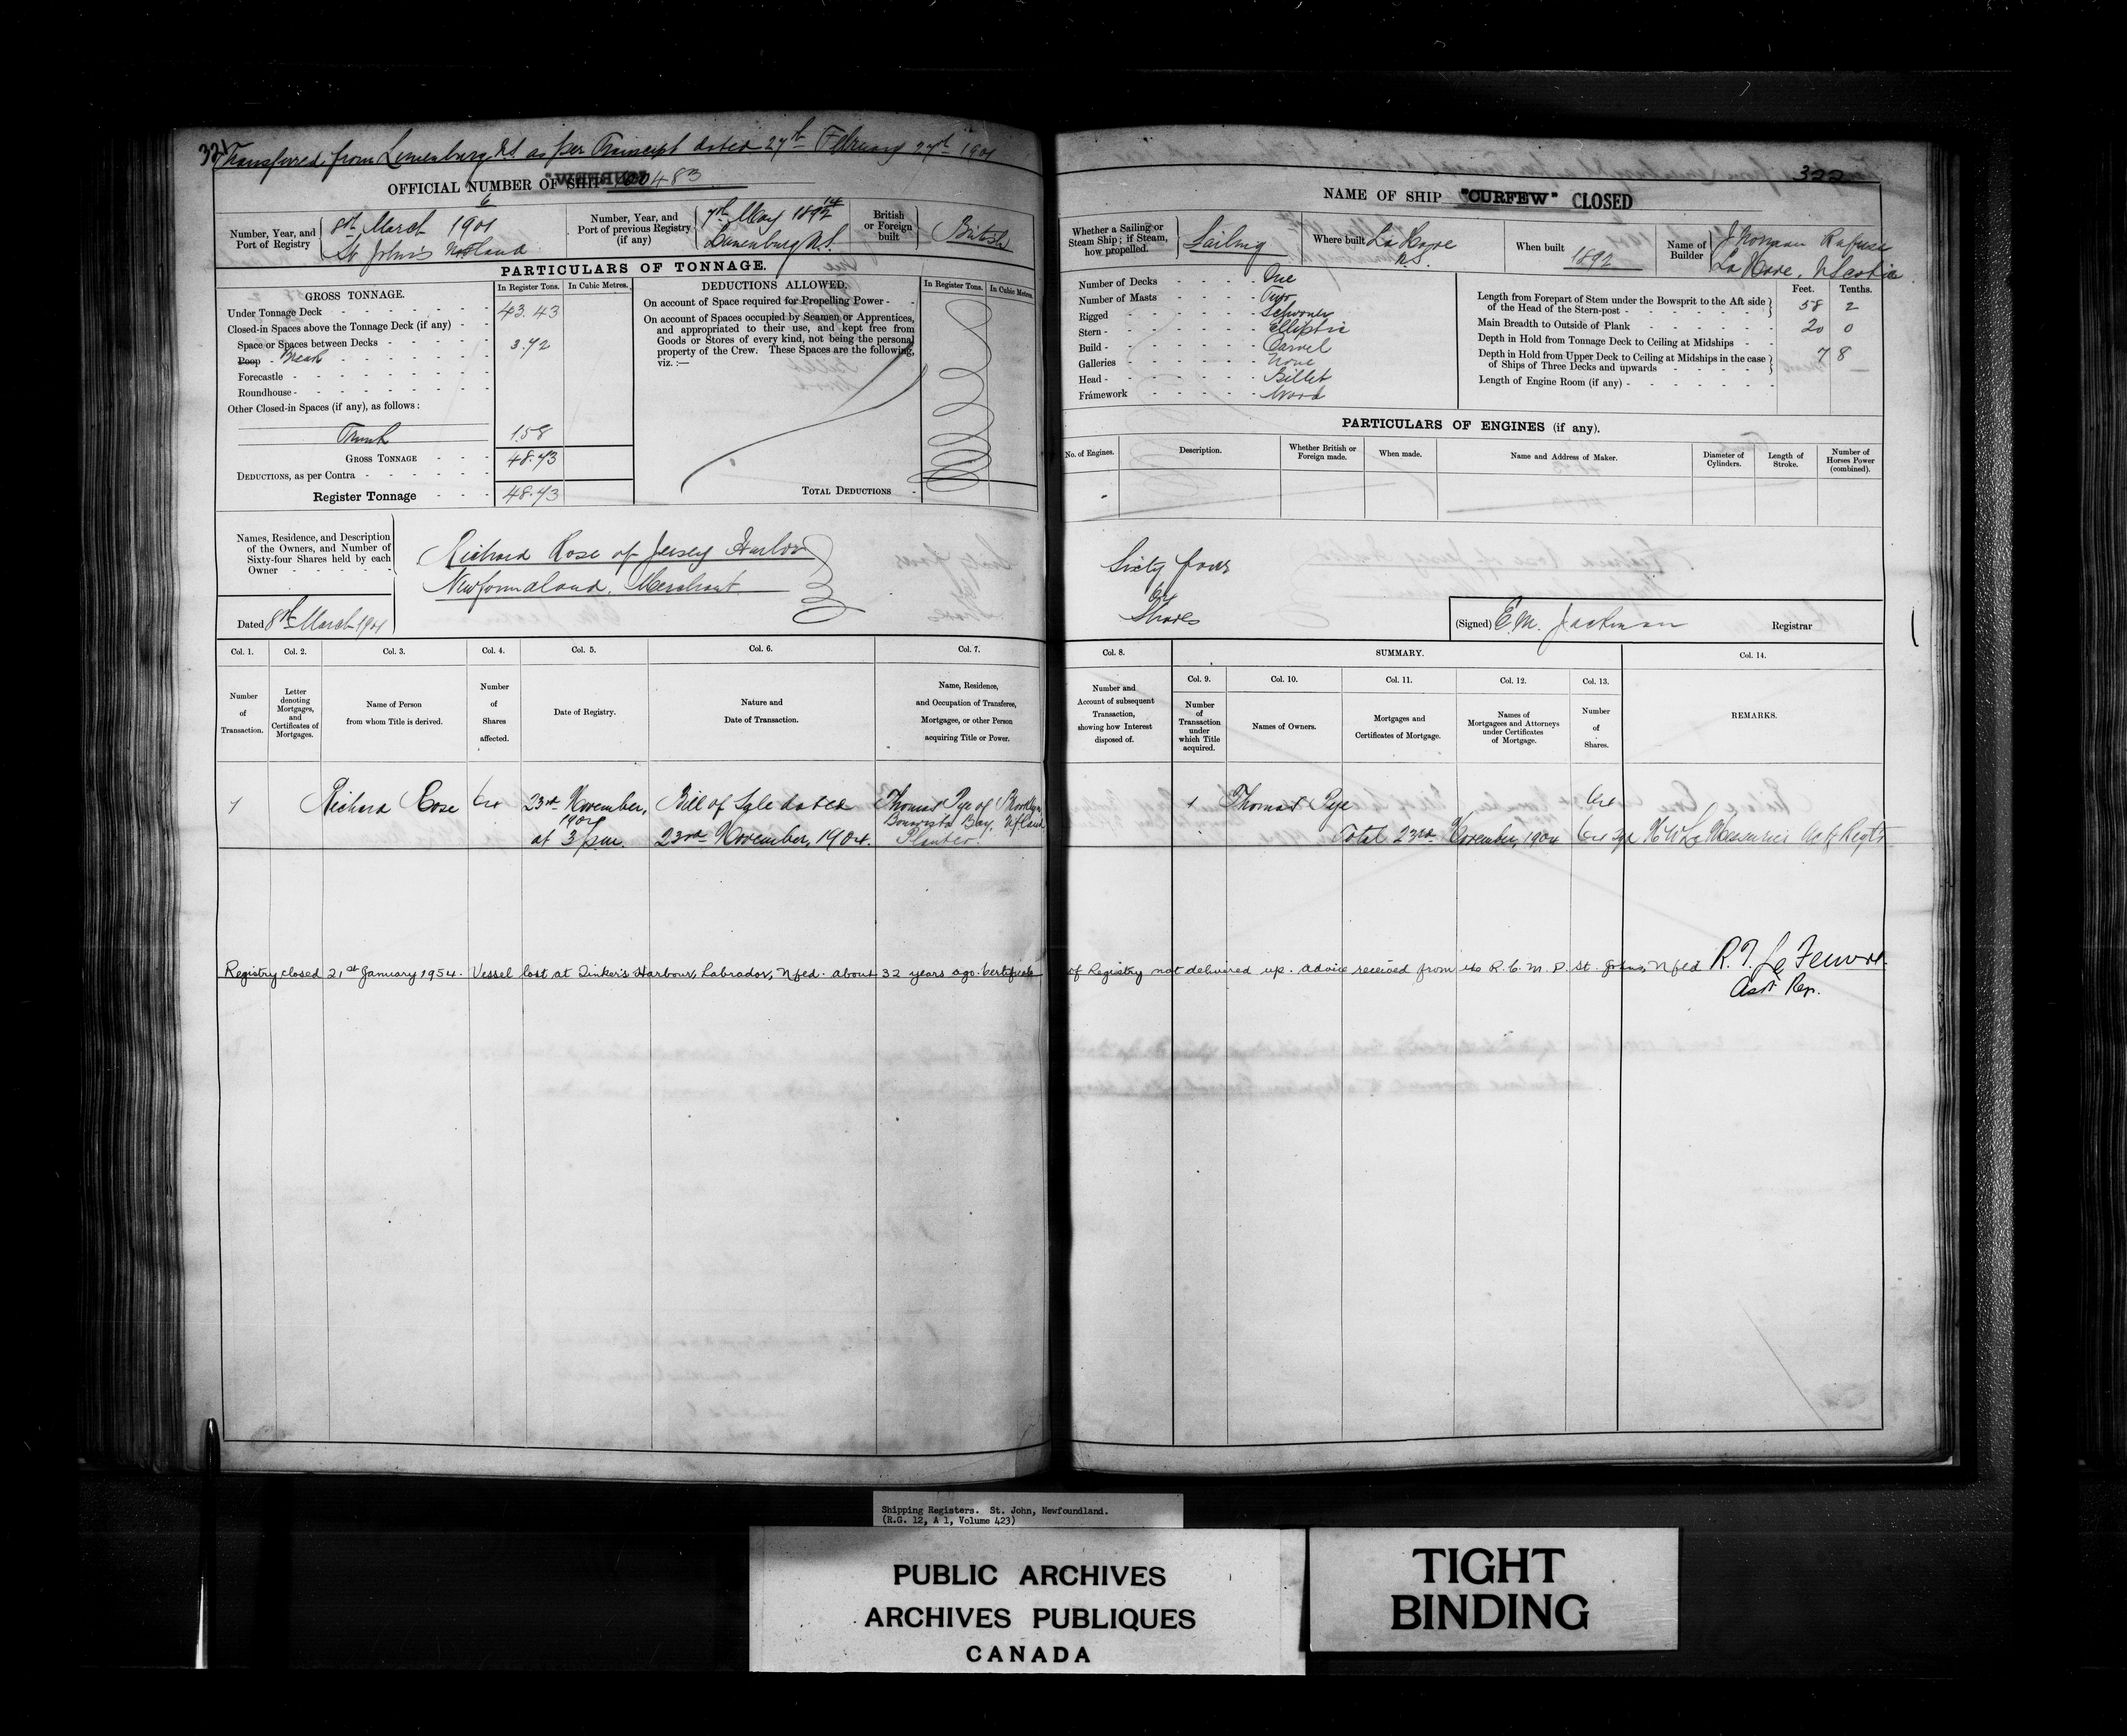 321
Transferred from Lunenburg N.S. as per Transcript dated 27th February 27th 1901
OFFICIAL NUMBER OF SHIP 100483
Number, Year, and Port of Registry
6
8th March 1901
St John's Nfland
Number, Year, and Port of previous Registry (if any)
14
7th May 1892
Lunenburg N.S.
British or Foreign built
British
PARTICULARS OF TONNAGE.
GROSS TONNAGE.
In Register Tons.
In Cubic Metres.
Under Tonnage Deck 43.43
Closed-in Spaces above the Tonnage Deck (if any)
Space or Spaces between Decks
Poop Break 3.72
Forecastle
Roundhouse
Other Closed-in Spaces (if any), as follows:
Trunk 1.58
GROSS TONNAGE 48.73
DEDUCTIONS, as per Contra
Register Tonnage 48.73
DEDUCTIONS ALLOWED.
In Register Tons.
In Cubic Metres.
On account of Space required for Propelling Power
On account of Spaces occupied by Seamen or Apprentices,
and appropriated to their use, and kept free from
Goods or Stores of every kind, not being the personal
property of the Crew. These Spaces are the following,
viz.:—
TOTAL DEDUCTIONS
Names, Residence, and Description
of the Owners, and Number of
Sixty-four Shares held by each
Owner
Richard Rose of Jersey Harbor
Newfoundland. Merchant
Dated 8th March 1901
Col. 1.
Col. 2.
Col. 3.
Col. 4.
Col. 5.
Col. 6.
Col. 7.
Number of Transaction.
Letter denoting Mortgages, and Certificates of Mortgages.
Name of Person from whom Title is derived.
Number of Shares affected.
Date of Registry.
Nature and Date of Transaction.
Name, Residence, and Occupation of Transferee, Mortgagee, or other Person acquiring Title or Power.
1
Richard Rose
64
23rd November,
1904
at 3 p.m.
Bill of Sale dated
23rd November, 1904.
Thomas Pye of Brooklyn
Bonavista Bay, Nfland
Planter.
322
NAME OF SHIP "CURFEW" CLOSED
Whether a Sailing or Steam Ship; if Steam, how propelled.
Sailing
Where built
La Have
N.S.
When built
1892
Name of Builder
J Norman Rafuse
La Have, N Scotia
Number of Decks One
Number of Masts Two
Rigged Schooner
Stern Elliptic
Build Carvel
Galleries None
Head Billet
Framework Wood
Feet. Tenths.
Length from Forepart of Stem under the Bowsprit to the Aft side
of the Head of the Stern-post 58 2
Main Breadth to Outside of Plank 20 0
Depth in Hold from Tonnage Deck to Ceiling at Midships 7 8
Depth in Hold from Upper Deck to Ceiling at Midships in the case
of Ships of Three Decks and upwards
Length of Engine Room (if any)
PARTICULARS OF ENGINES (if any).
No. of Engines.
Description.
Whether British or Foreign made.
When made.
Name and Address of Maker.
Diameter of Cylinders.
Length of Stroke.
Number of Horses Power (combined).
Sixty four
64
Shares
(Signed) E.M. Jackman Registrar
Col. 8.
SUMMARY.
Col. 9.
Col. 10.
Col. 11.
Col. 12.
Col. 13.
Col. 14.
Number and Account of subsequent Transaction, showing how Interest disposed of.
Number of Transaction under which Title acquired.
Names of Owners.
Mortgages and Certificates of Mortgage.
Names of Mortgagees and Attorneys under Certificates of Mortgage.
Number of Shares.
REMARKS.
1
Thomas Pye
64
Total 23rd November, 1904 64 H W LeMessurier
Registry closed 21st January 1954. Vessel lost at Tinker's Harbour, Labrador, Nfld. about 32 years ago. Certificate of Registry not delivered up. advice received from the R.C.M.P. St. Johns, Nfld
Asst Reg.
Shipping Registers. St. John, Newfoundland.
(R.G. 12, A 1, Volume 423)
PUBLIC ARCHIVES
ARCHIVES PUBLIQUES
CANADA
TIGHT
BINDING